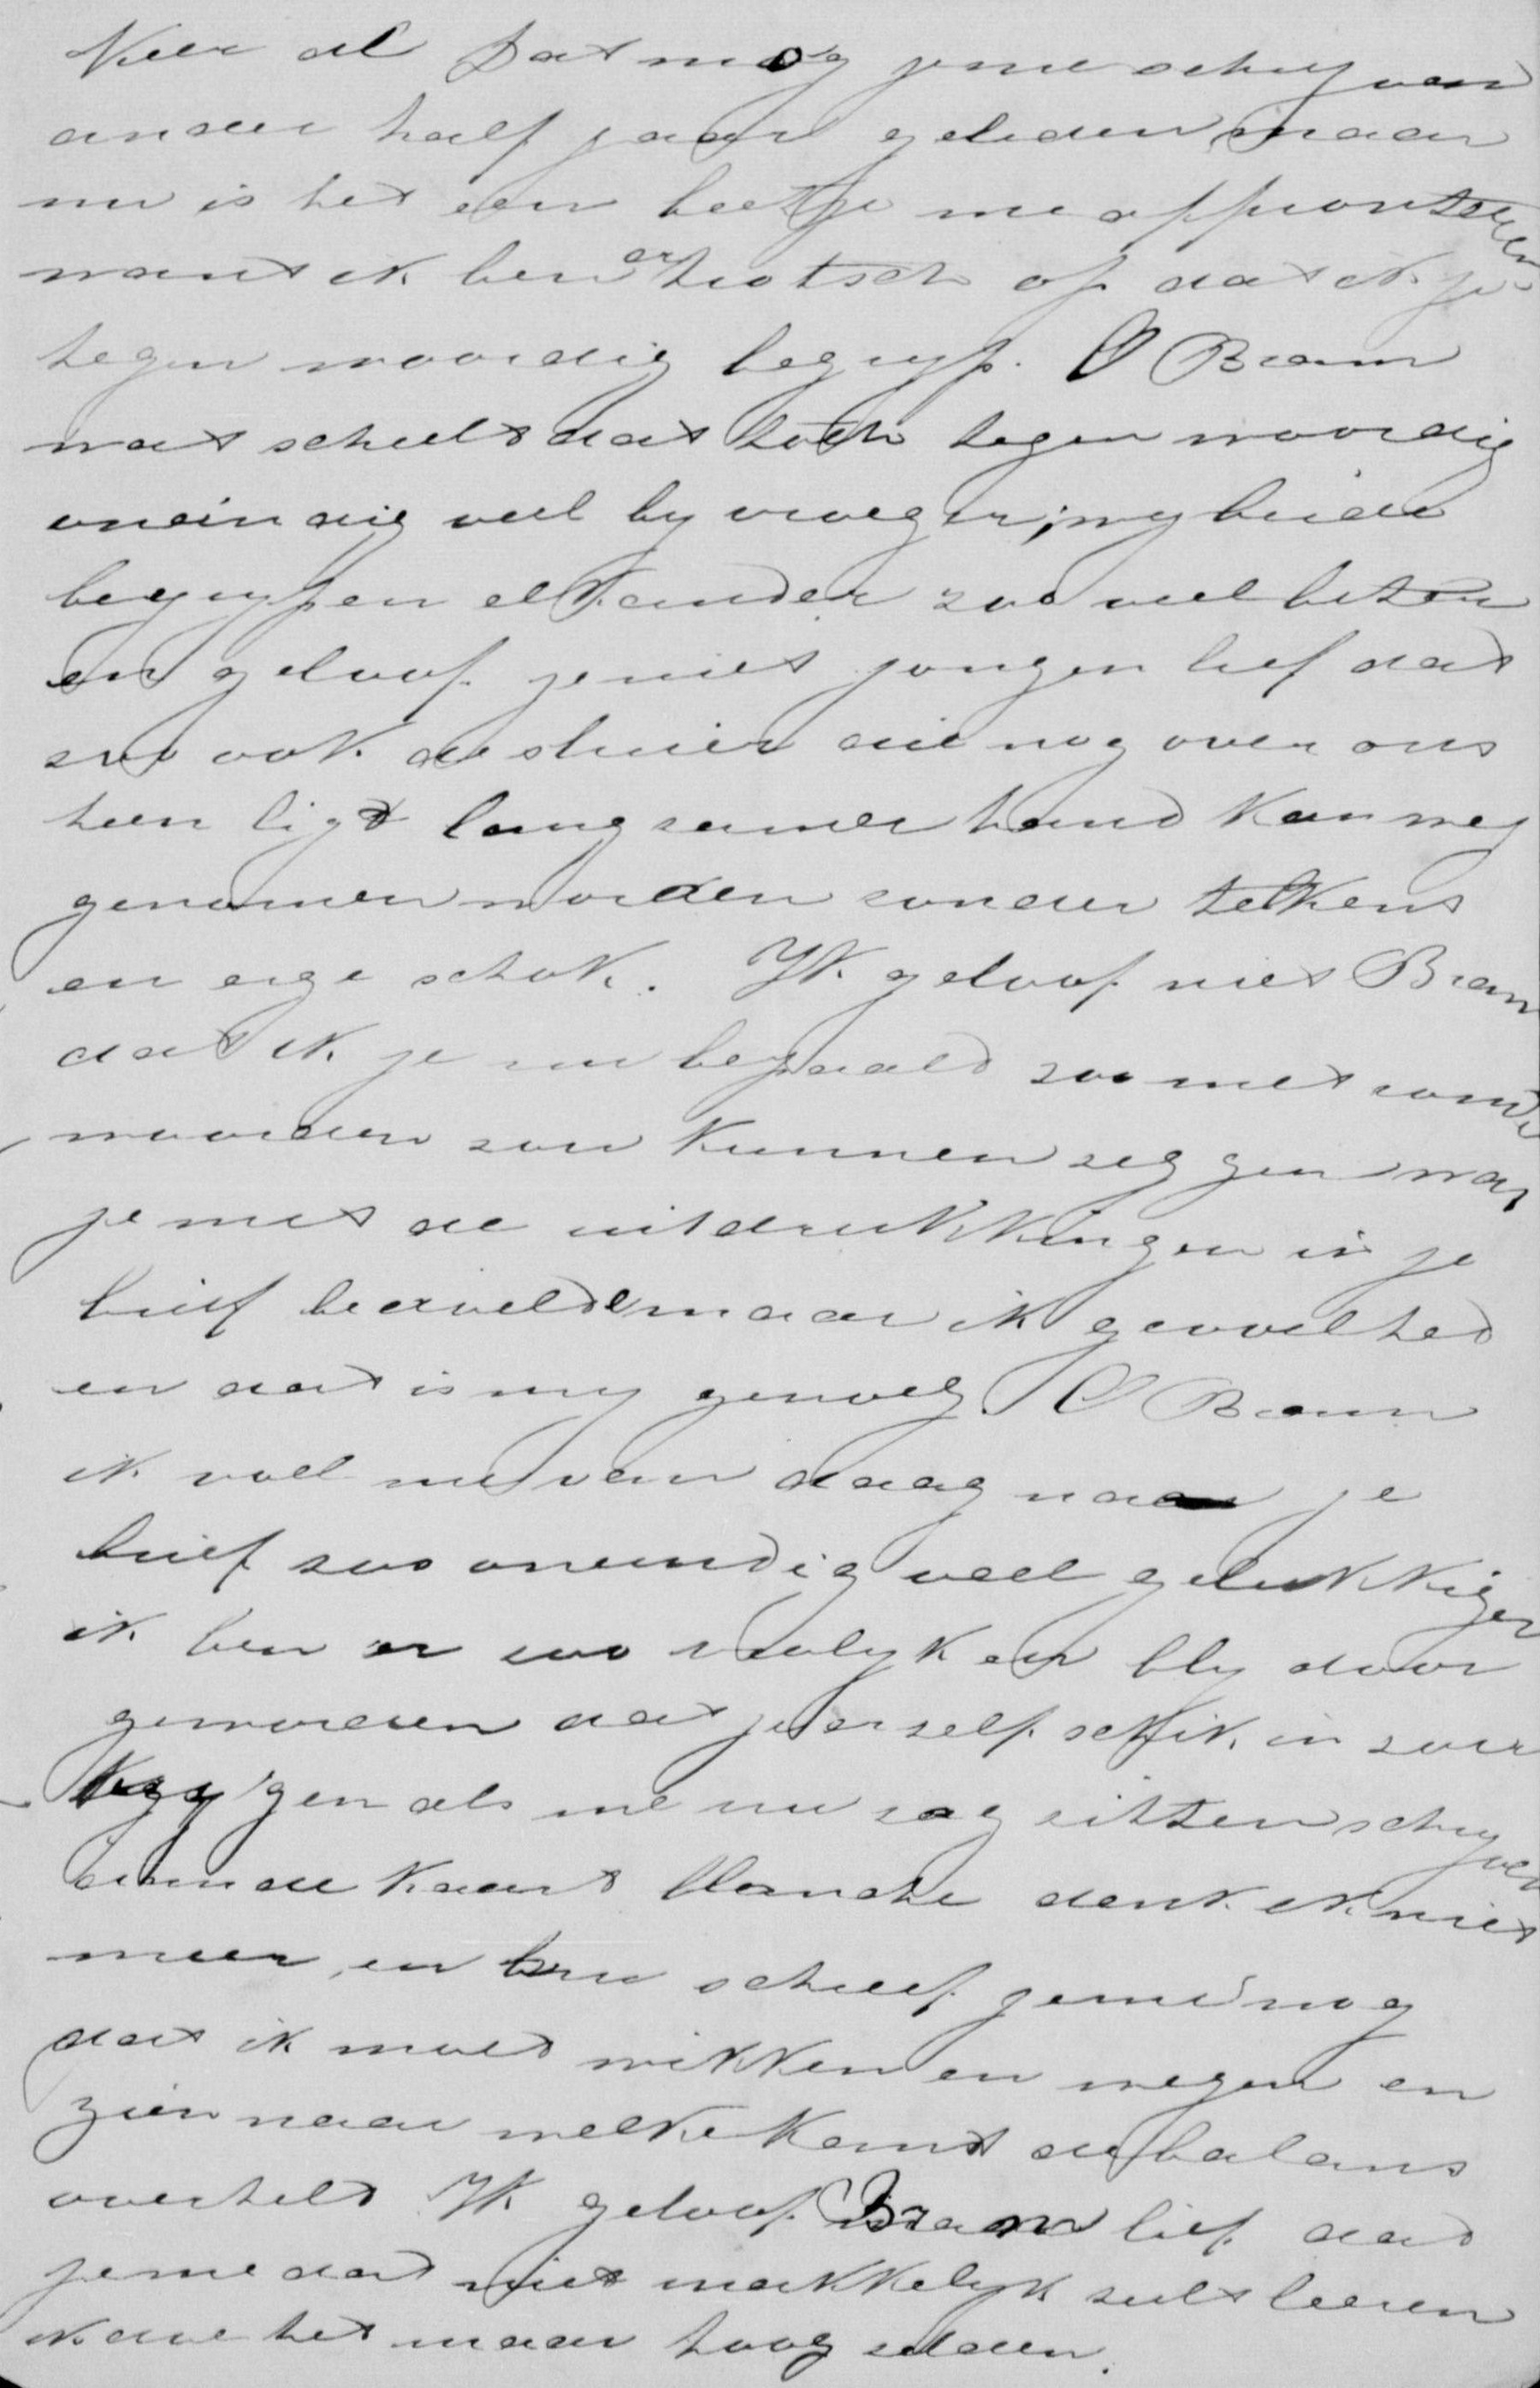 Neen al dat mog je me schryven
ander half jaar geleden maar
nu is het een beetje me affronteeren
want ik ben er trotsch op dat ik je
tegen woordig begryp. O Bram
wat scheelt dat toch tegen woordig
oneindig veel by vroeger; wy beide
begrypen elkander zoo veel beter
en geloof je niet jongen lief dat
zoo ook de sluier die nog over ons
heen ligt langzamerhand kan weg
genomen worden zonder telkens
en erge schok. Ik geloof niet Bram
dat ik je nu bepaald zoo met ronde
woorden zou kunnen zeggen wat
je met de uitdrukkingen in je
brief bedoelde maar ik gevoel het
en dat is my genoeg. O Bram
ik voel me van daag naar je
brief zoo oneindig veel gelukkiger
ik ben er zoo vrolyk en bly door
geworden dat je er zelf schik in zou
krygen als me nu zag zitten schryven
aan de kaart blanche denk ik niet
meer, en schreef je me nog
dat ik moet wikken en wegen en
zien naar welke kant de balans
overhelt Ik geloof Bram lief dat
je me dat niet makkelyk zult leeren
ik doe het maar hoog zelden.